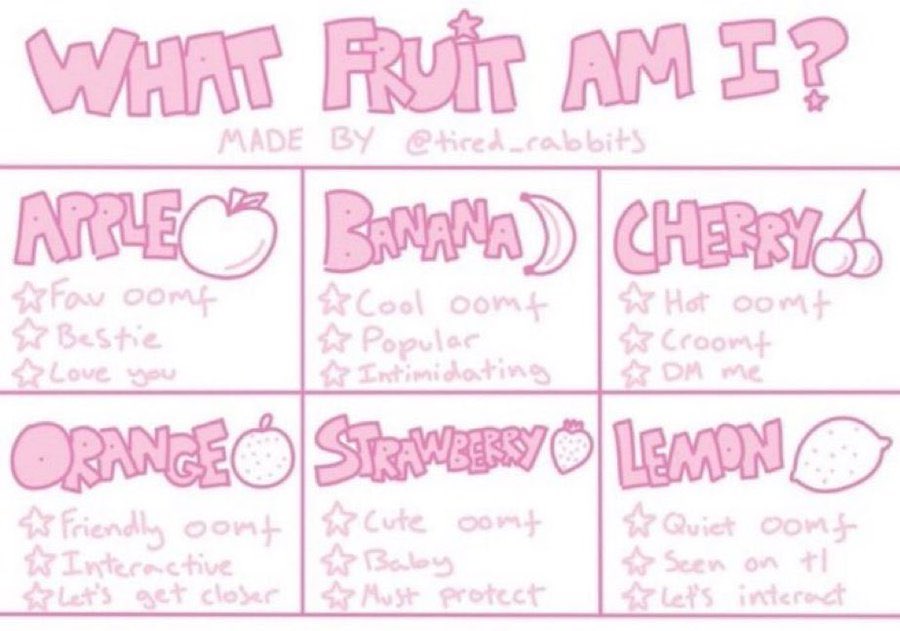 WHAT FRUIT AM I?
MADE BY @tired_rabbits
APPLE
Fav oomf
Bestie
Love you
BANANA
Cool oomf
Popular
Intimidating
CHERRY
Hot oomf
Croomf
DM me
ORANGE
Friendly oomf
Interactive
Let's get closer
STRAWBERRY
Cute oomf
Baby
Must protect
LEMON
Quiet oomf
Seen on tl
Let's interact